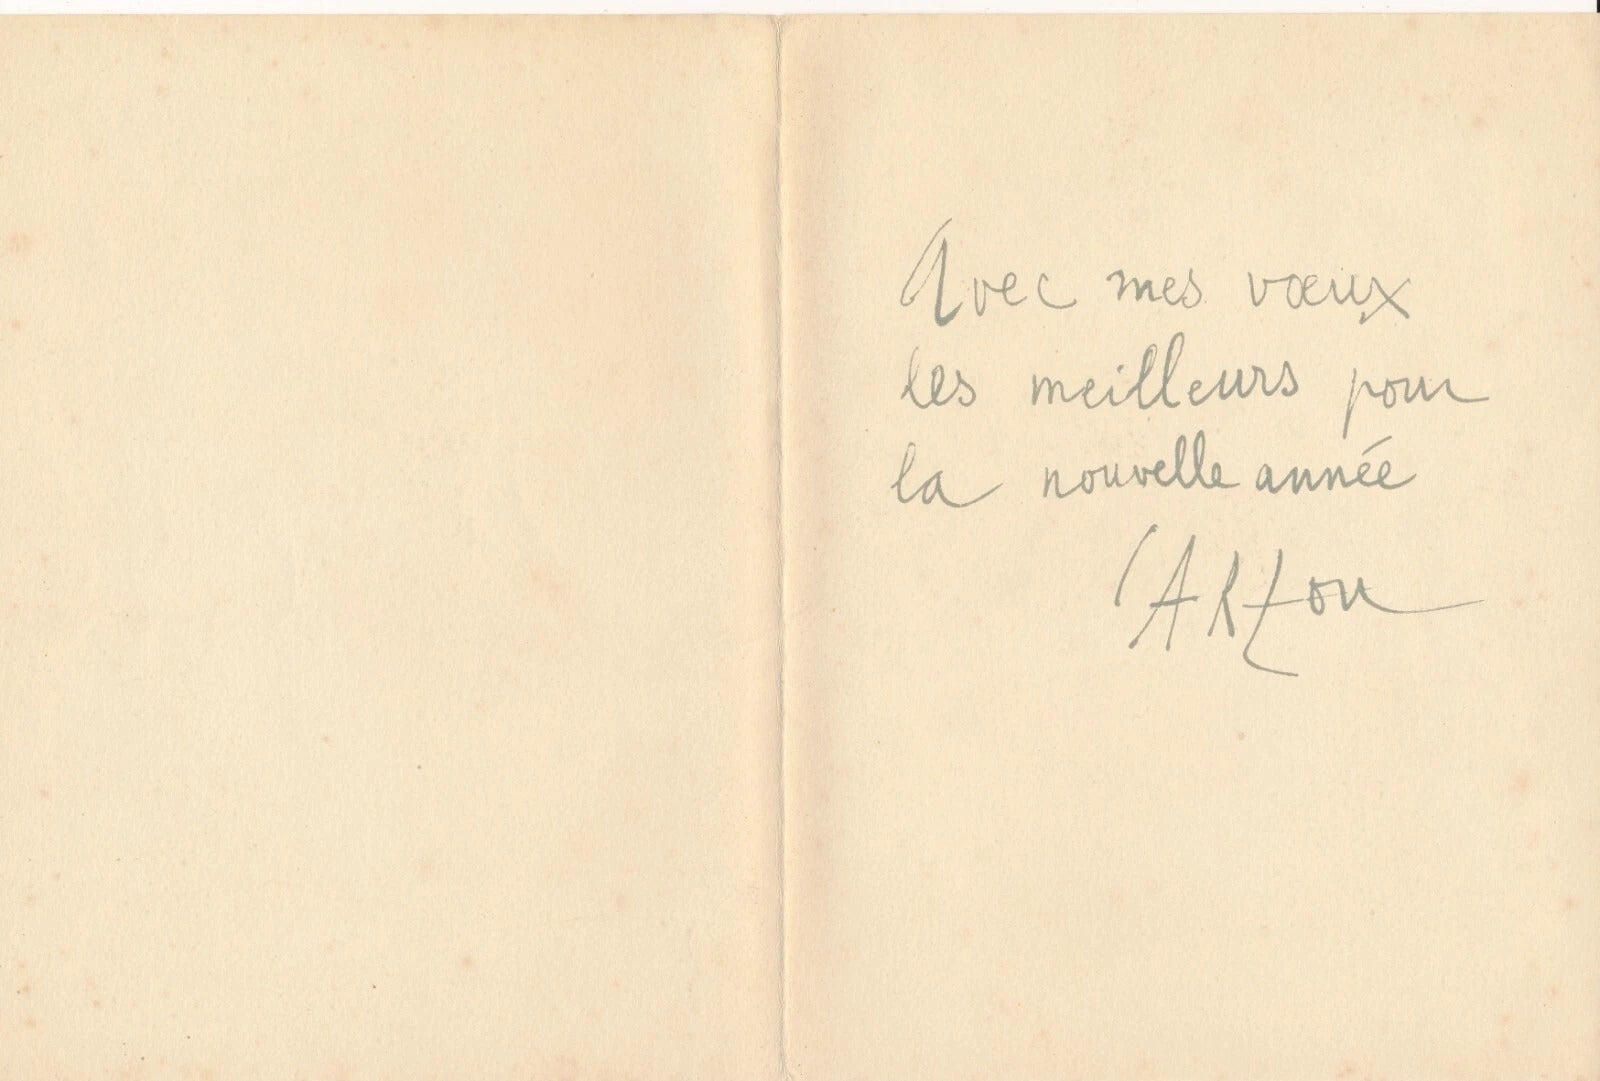 Avec mes vœux
les meilleurs pour
la nouvelle année
CARZou